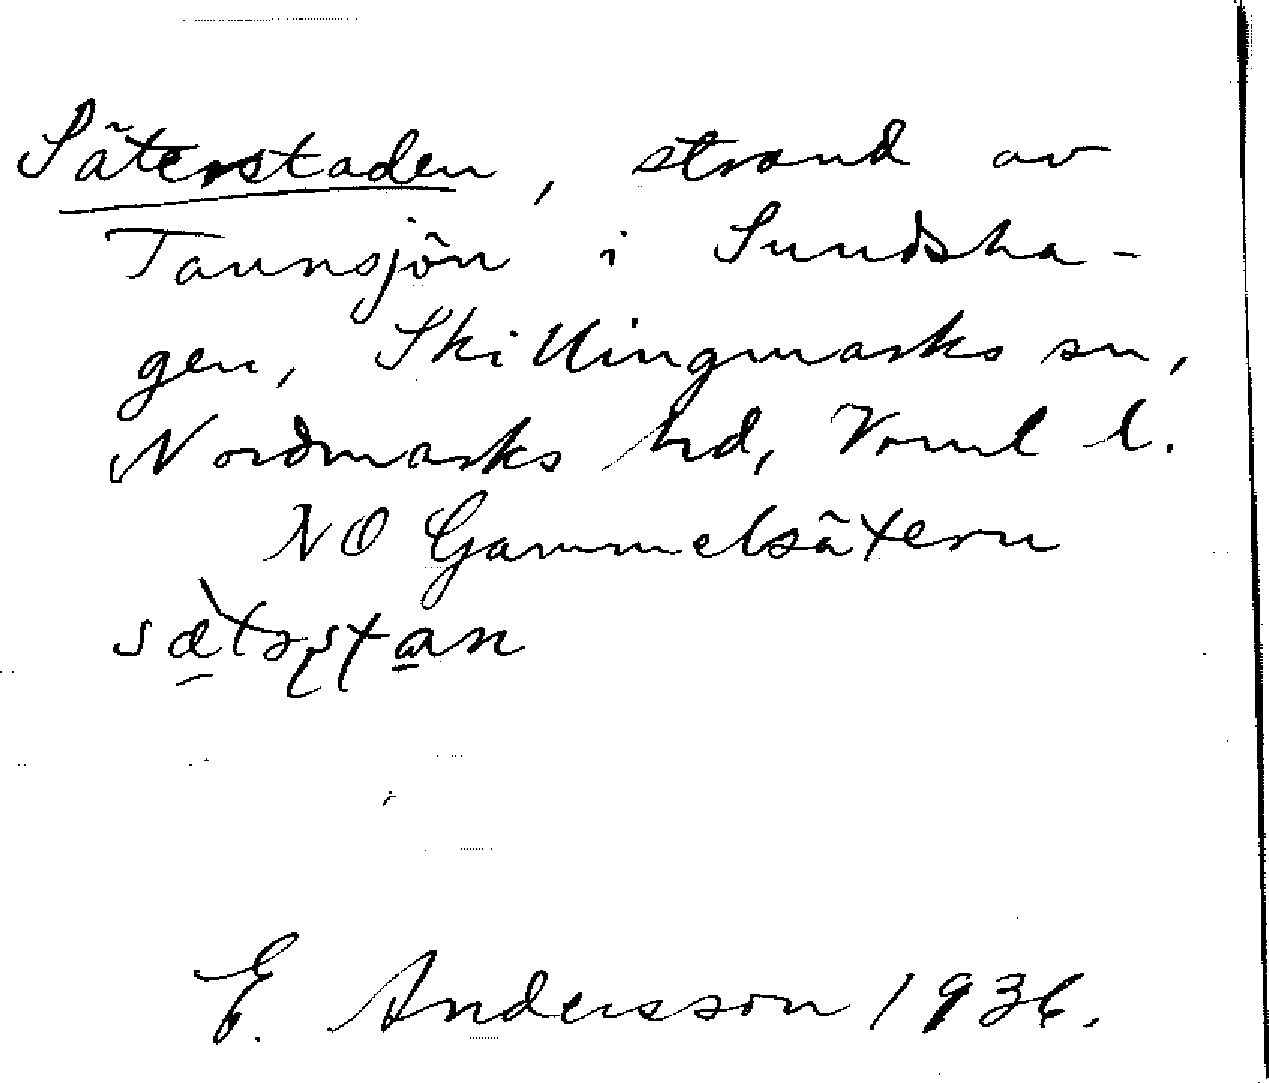 Säterstaden, strand av
Tannsjön i Sundsha-
gen, Skillingmarks sn,
Nordmarks hd, Vrml l.
NO Gammelsätern
E. Andersson 1936.